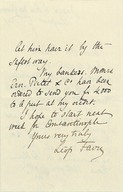 let him have it by the
safest way.
My bankers, Messrs
Pictet & Co have been
ordered to send you £1000
to be put at my
I hope to start next
week for Constantinople
Yours very truly
Leop Favre